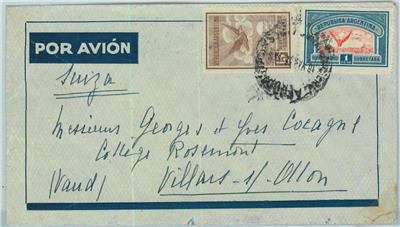 POR AVIÓN
REPUBLICA ARGENTINA
1
SOBRETASA
Suiza
Messieurs Georges et Yves Cocagne
Collège Rosemont
(Vaud) Villars-s/-Ollon